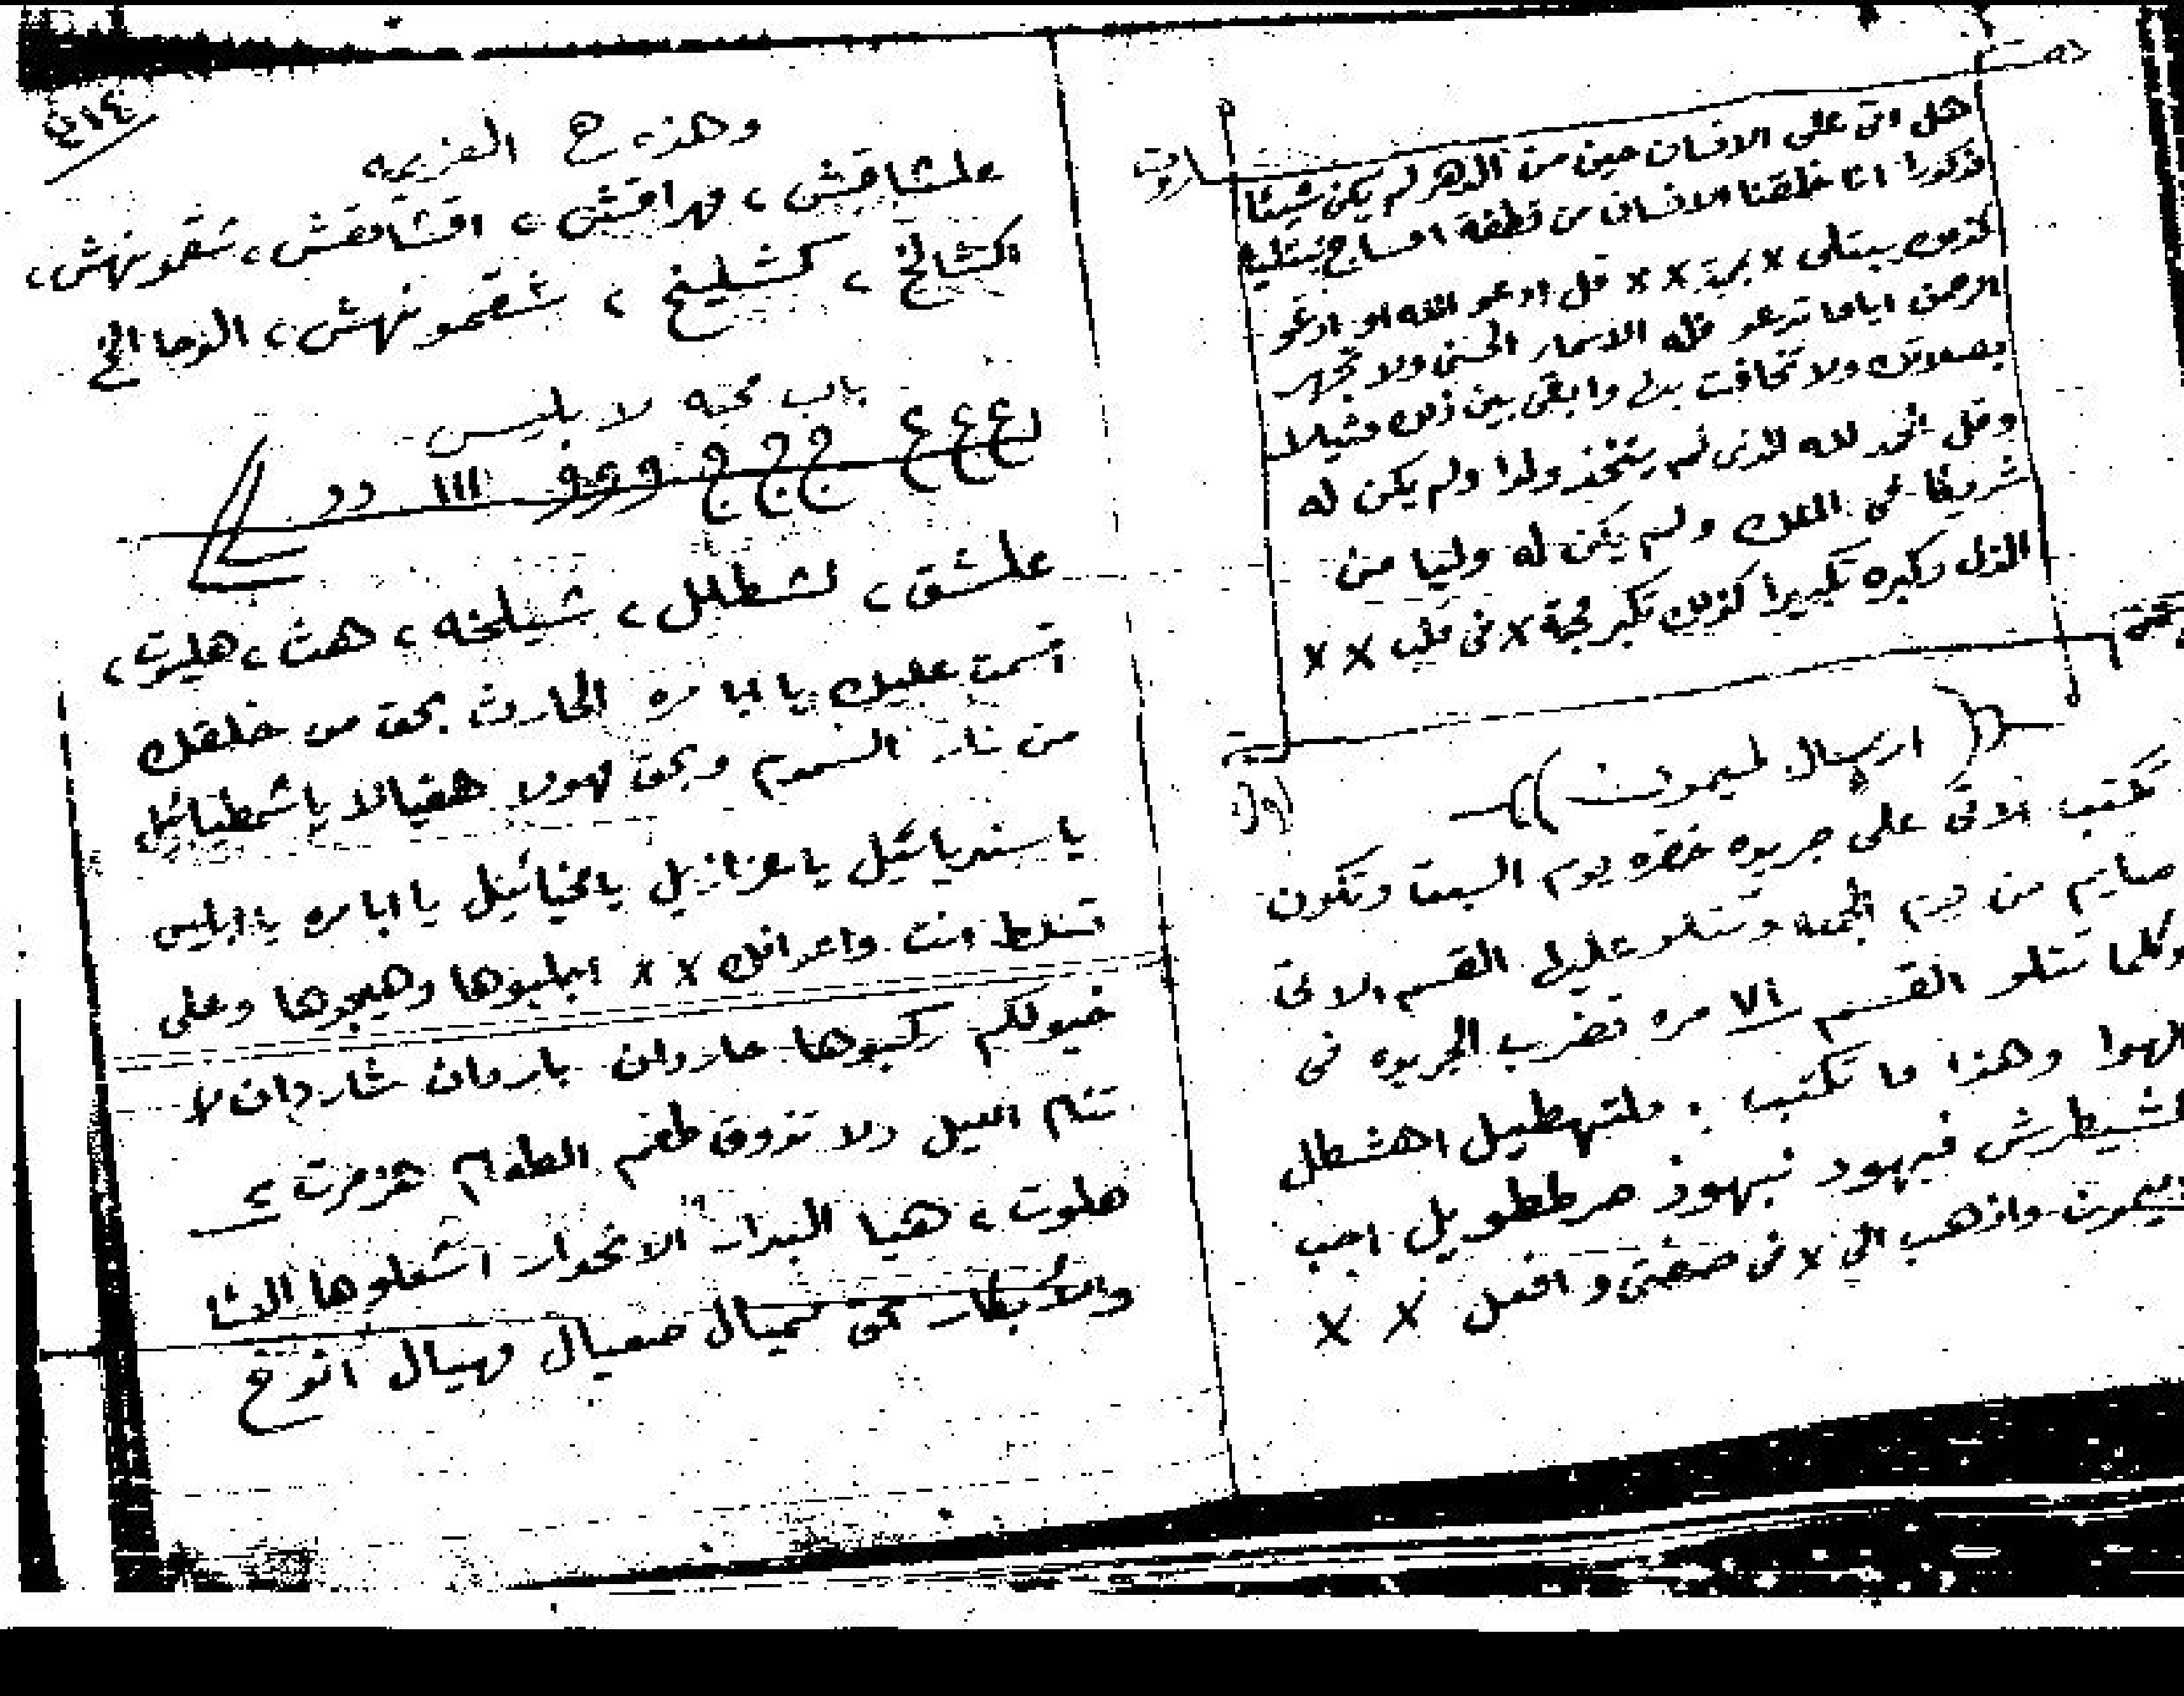 هل اتى على الانسان حين من الدهر لم يكن شيئا
مذكورا انا خلقنا الانسان من نطفة امساج نبتليه
كذلك يبتلى x x x قل ادعو الله او ادعو
الرحمن اياما تدعو فله الاسماء الحسنى ولا تجهر
بصلاتك ولا تخافت بها وابتغى بين ذلك
وقل الحمد لله الذى لم يتخذ ولدا ولم يكن له
شريكا فى الملك ولم يكن له وليا من
الذل وكبره تكبيرا كذلك تكبر محبة x فى قلب x x
(( ارسال لميمون ))
تكتب الاتى على جريده خضره يوم السبت وتكون
صايم من يوم الجمعه وتتلو عليها القسم الاتى
وكلما تتلو القسم ٧١ مره تضرب الجريده فى
الهوا وهذا ما تكتب : ملتهطيل اهشطل
شيطرش فيهود نيهوذ مرططويل اجب
يميمون واذهب الى x فى صفتى وافعل x x
٢١٤
وهذه ح العزيمه
علشاقش ، مهراقش ، اقشاقش ، شقمونهش ،
اكشالخ ، كشليخ ، شقمونهش ، الوحا الخ
باب محبه لا بليس
ع ع ع ج ج ج و و و ااا د د
علشق ، لشطلل ، شيلخه ، هث ، هليوت ،
اقسمت عليك يا ابا مره الحارث بحق من خلقك
من نار السموم وبحق يا شمطيائيل
يا سندريائيل يا عزازيل يا يا ابا مره يا ابليس
تسلط انت واعوانك x x اجلبوها وهيجوها وعلى
خيولكم ركبوها ماروان باروان شاردان لا
تنام الليل ولا تذوق طعم الطعام هزمرت ،
هلوت ، هيا البدار الانحدار اشعلوها
والابكار بحق صعيال مهيال انوخ